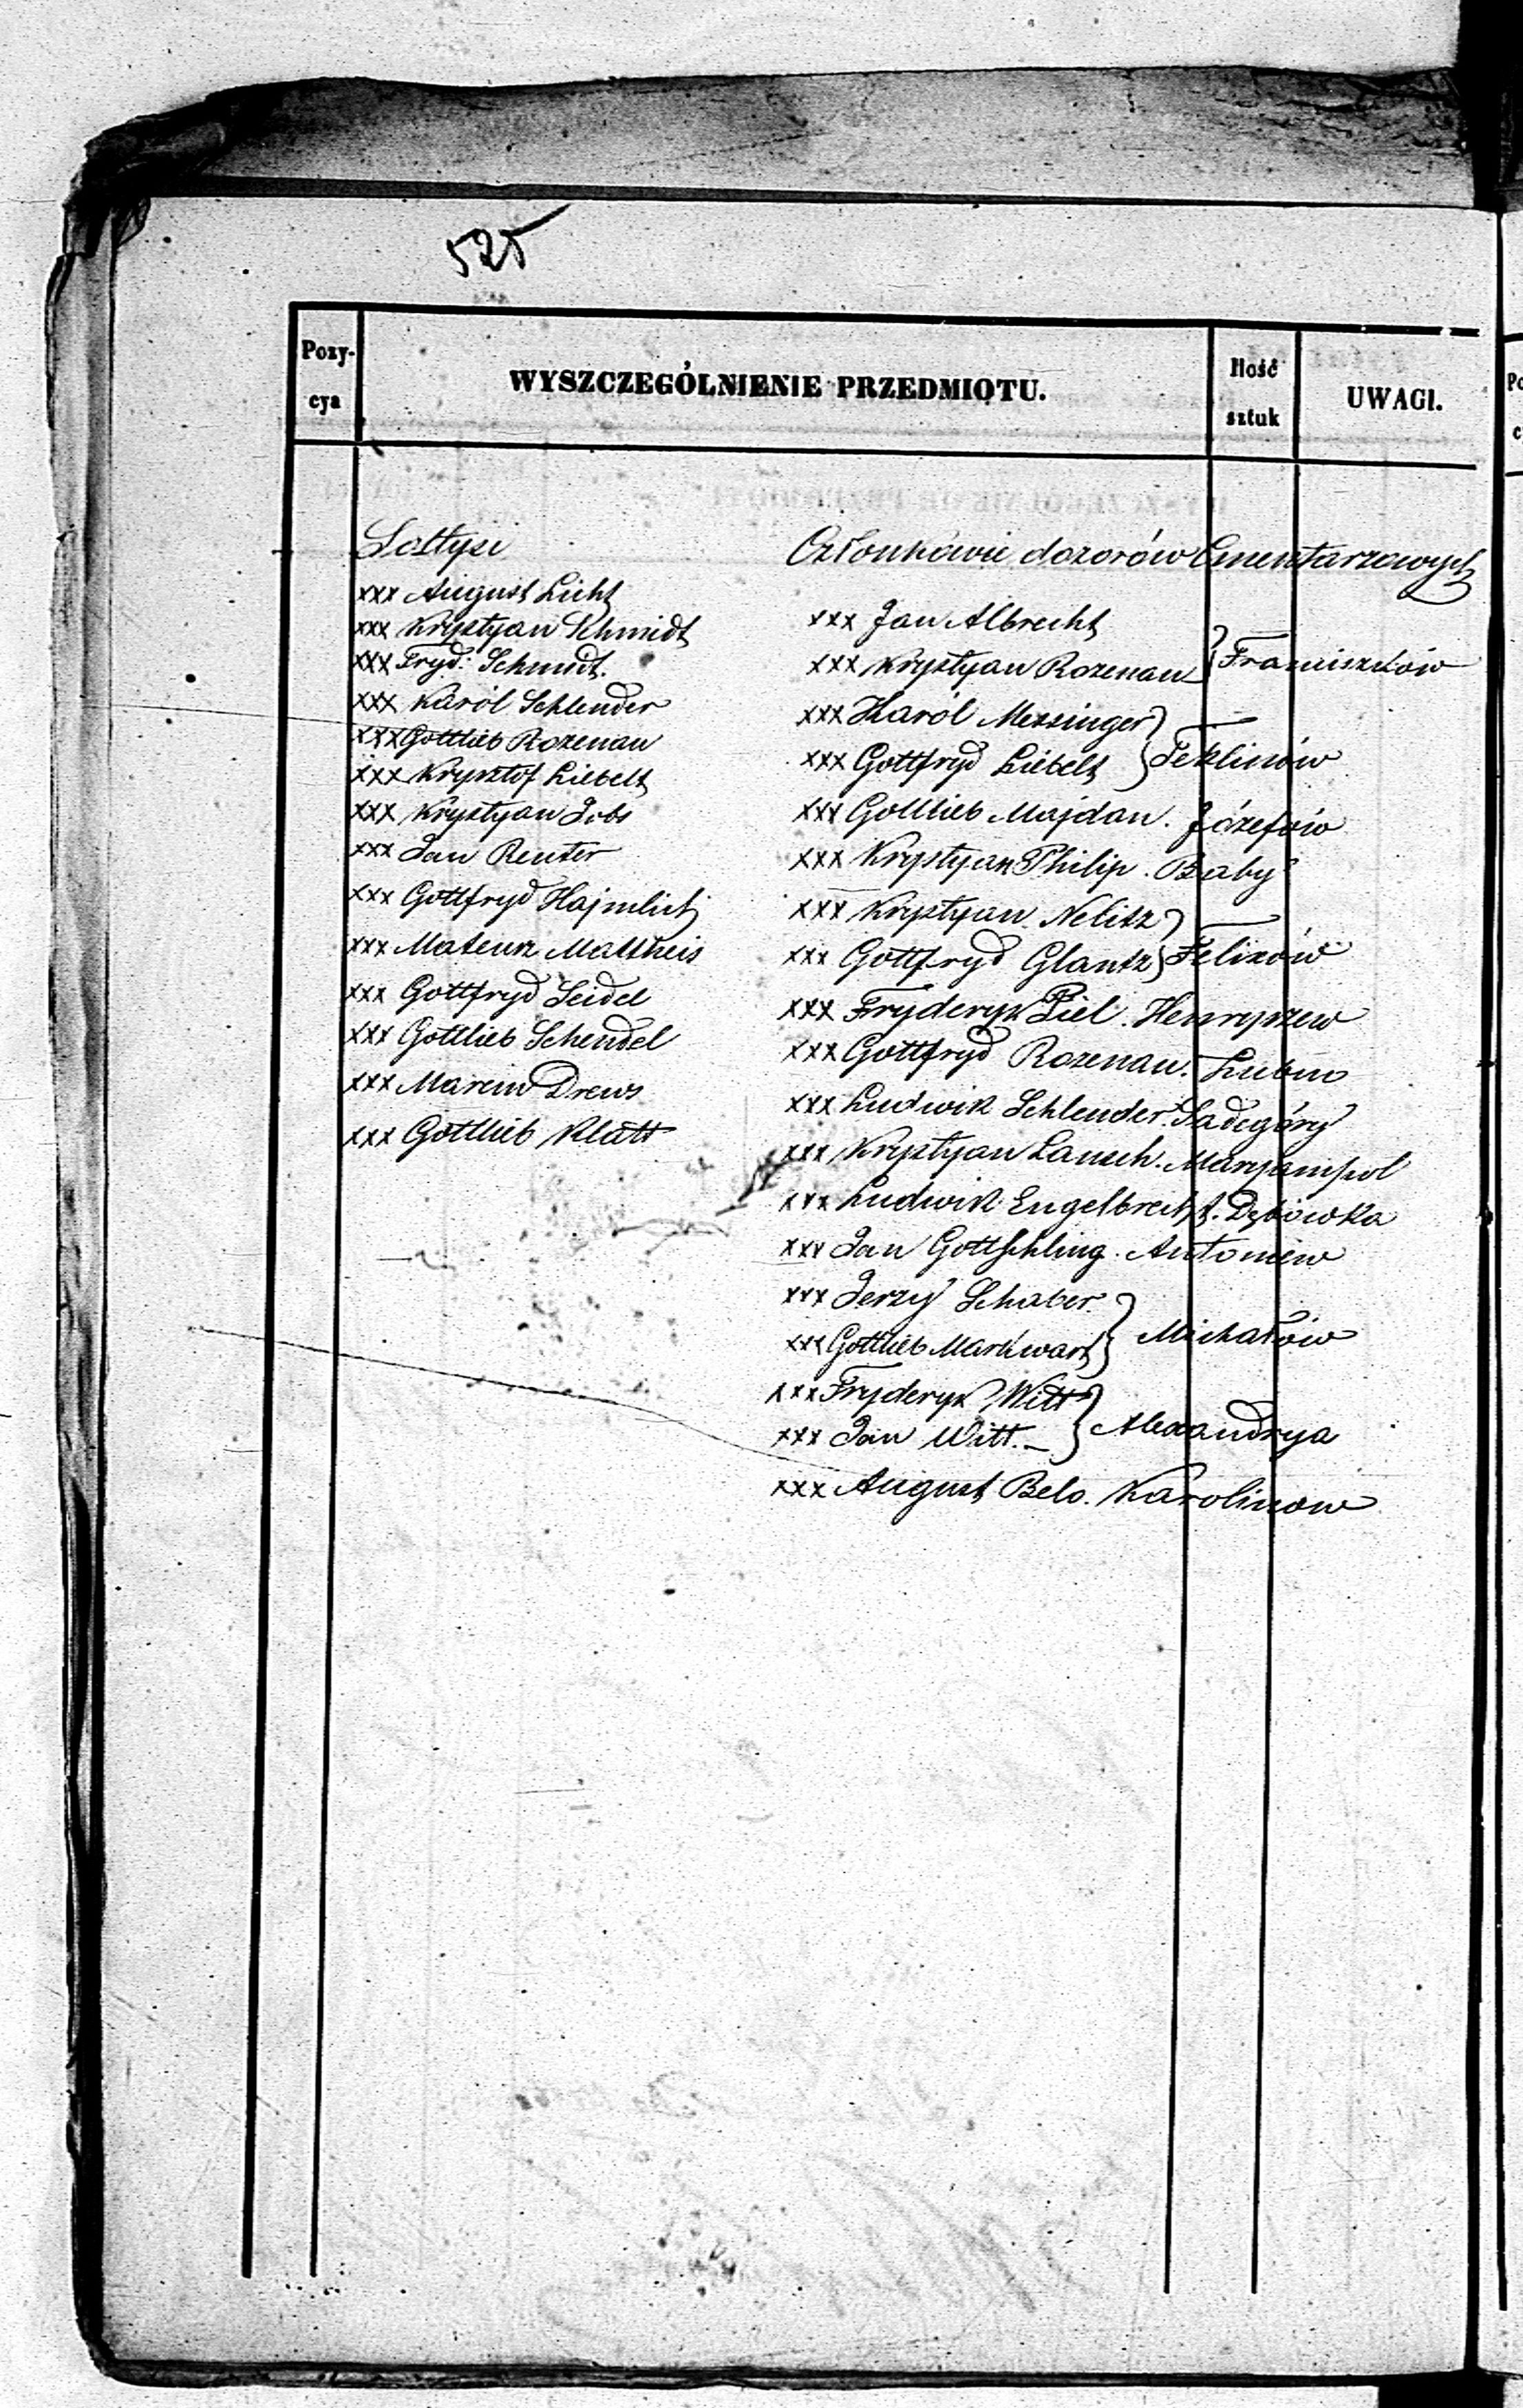 525
Pozy-
cya
WYSZCZEGÓLNIENIE PRZEDMIOTU.
Ilość
sztuk
UWAGI.
Sołtysi
xxx August Licht
xxx Krystyan Schmidt
xxx Fryd: Schmidt.
xxx Karól Schlender
xxx Gottlieb Rozenau
xxx Krysztof Liebelt
xxx Krystyan Jobs
xxx Jan Reuter
xxx Gottfryd Hajmlich
xxx Mateusz Mattheis
xxx Gottfryd Seidel
xxx Gottlieb Schendel
xxx Marcin Drews
xxx Gottlieb Klatt
Członkowie dozorów Cmentarzowych
xxx Jan Albrecht
xxx Krystyan Rozenau } Franciszków
xxx Karól Messinger
xxx Gottfryd Liebelt } Teklinów
xxx Gottlieb Majdan. Józefów
xxx Krystyan Philip. Baby
xxx Krystyan Nelitz
xxx Gottfryd Glantz } Felixów
xxx Fryderyk Piel. Henryszew
xxx Gottfryd Rozenau. Lubno
xxx Ludwik Schlender. Sadygóry
xxx Krystyan Lausch. Maryampol
xxx Ludwik Engelbrecht. Dębówka
xxx Jan Gottschling. Antoniew
xxx Jerzy Schaber.
xxx Gottlieb Markwart } Michałów
xxx Fryderyk Witt
xxx Jan Witt. } Alexandrya
xxx August Belo. Karolinow
Po
c